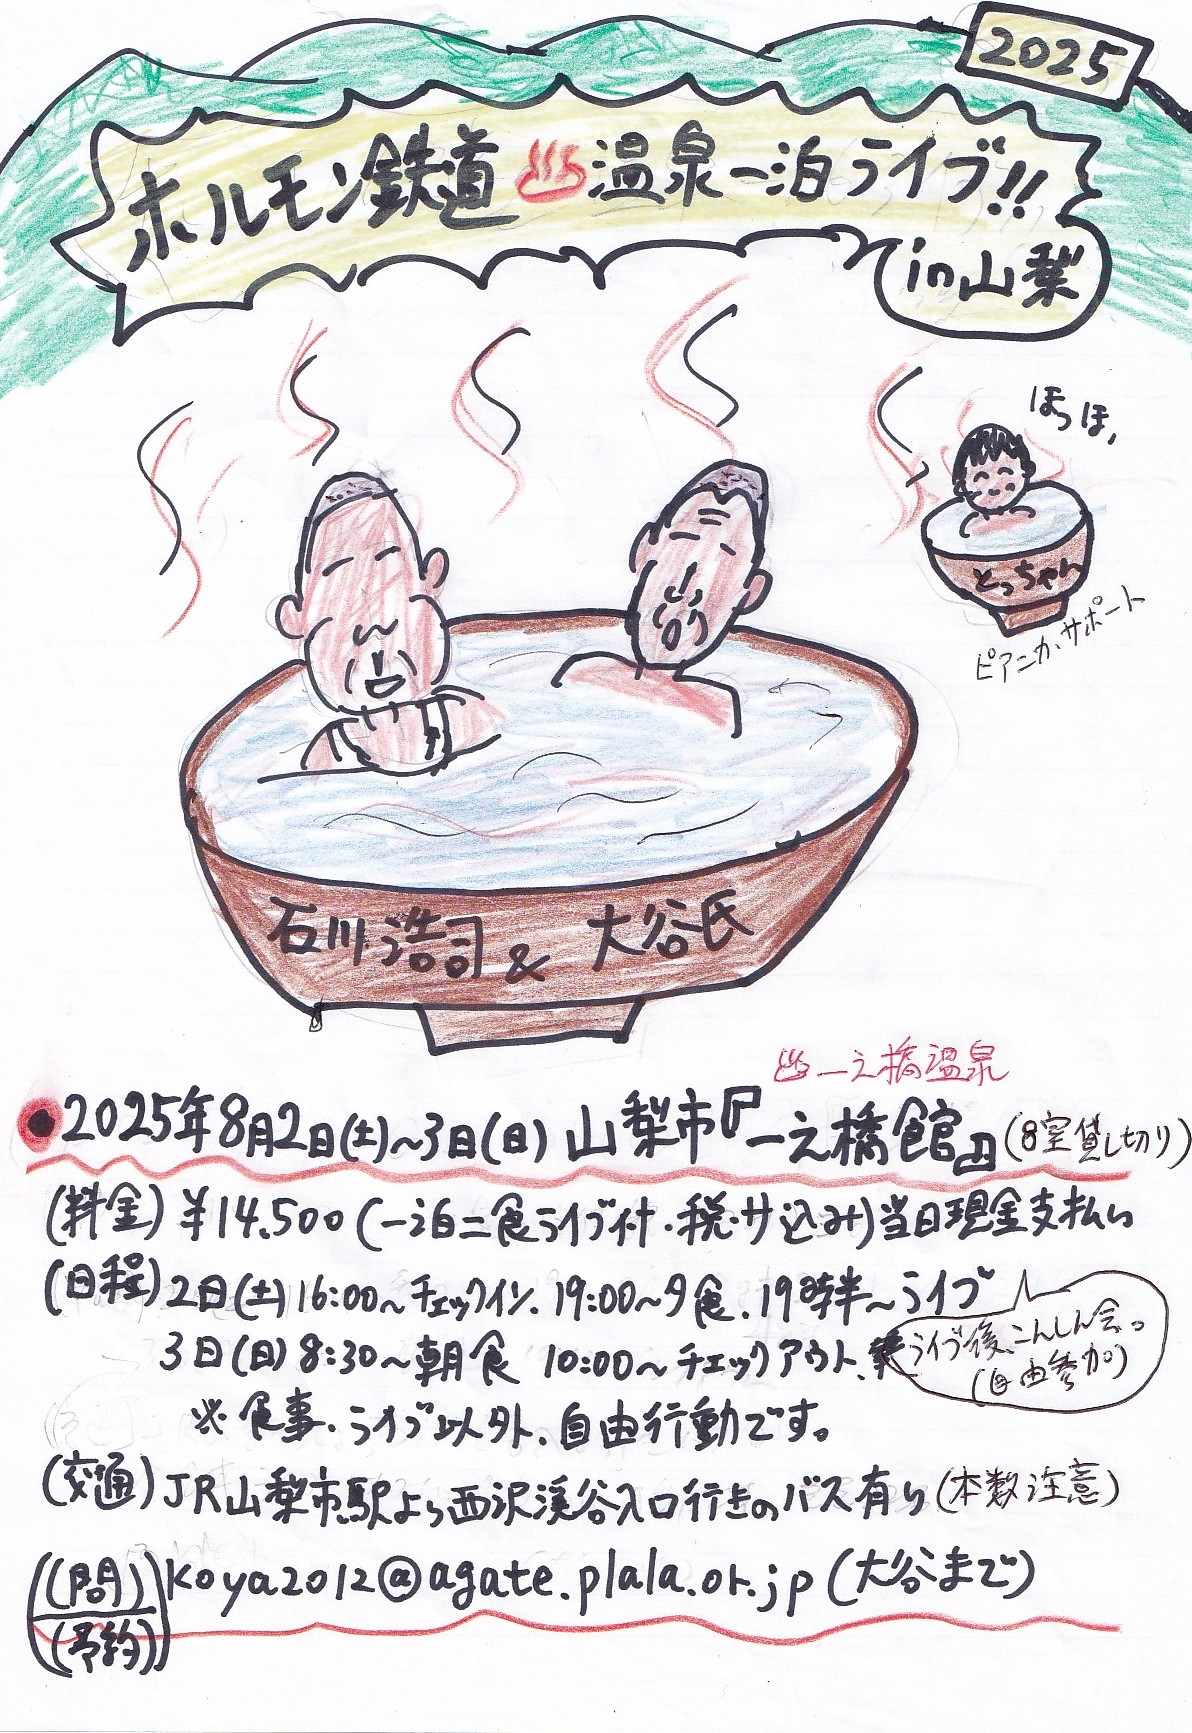 2025
ホルモン鉄道♨温泉一泊ライブ!!
in山梨
ほっほ,
とっちゃん
ピアニカ、サポート
石川浩司 & 大谷氏
♨一之橋温泉
●2025年8月2日(土)〜3日(日) 山梨市『一之橋館』(8室貸し切り)
(料金) ¥14.500 (一泊二食ライブ付・税・サ込み)当日現金支払い
(日程) 2日(土)16:00〜チェックイン、19:00〜夕食、19時半〜ライブ
ライブ後、こんしん会。
(自由参加)
3日(日) 8:30〜朝食 10:00〜チェックアウト、
※食事、ライブ以外、自由行動です。
(交通) JR山梨市駅より西沢渓谷入口行きのバス有り(本数注意)
(問) koya2012@agate.plala.or.jp (大谷まで)
(予約)